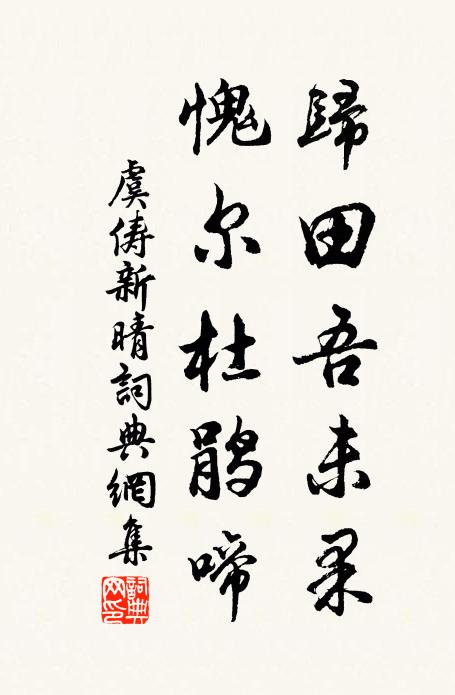 歸田吾未果
愧尔杜鹃啼
虞俦新晴詞典網集
詞典网印